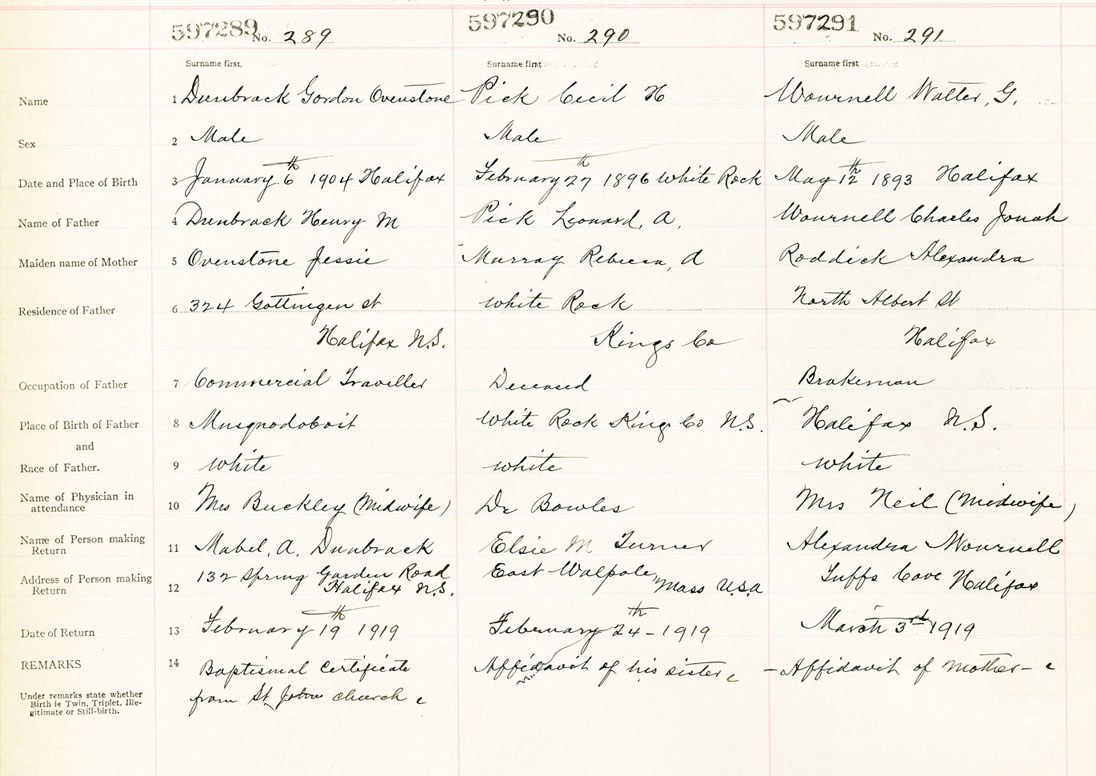 597289 No. 289 597290 No. 290 597291 No. 291
Surname first. Surname first Surname first
Name 1 Dunbrack Gordon Ovenstone Pick Cecil H Wournell Walter, G.
Sex 2 Male Male Male
Date and Place of Birth 3 January 6th 1904 Halifax February 27th 1896 White Rock May 12th 1893 Halifax
Name of Father 4 Dunbrack Henry M Pick Leonard, A. Wournell Charles Jonah
Maiden name of Mother 5 Ovenstone Jessie Murray Rebecca, A Roddick Alexandra
Residence of Father 6 324 Gottingen St White Rock North Albert St
Halifax N.S. Kings Co Halifax
Occupation of Father 7 Commercial Traveller Deceased Brakeman
Place of Birth of Father 8 Musquodoboit White Rock Kings Co N.S. Halifax N.S.
and
Race of Father. 9 White White White
Name of Physician in attendance 10 Mrs Buckley (Midwife) Dr Bowles Mrs Neil (Midwife)
Name of Person making Return 11 Mabel, A. Dunbrack Elsie M Turner Alexandra Wournell
Address of Person making Return 12 132 Spring Garden Road Halifax N.S. East Walpole Mass U.S.A Tuffs Cove Halifax
Date of Return 13 February 19th 1919 February 24th - 1919 March 3rd 1919
REMARKS 14 Baptismal Certificate Affidavit of his sister c - Affidavit of Mother - c
from St Johns Church c
Under remarks state whether
Birth is Twin, Triplet, Ille-
gitimate or Still-birth.